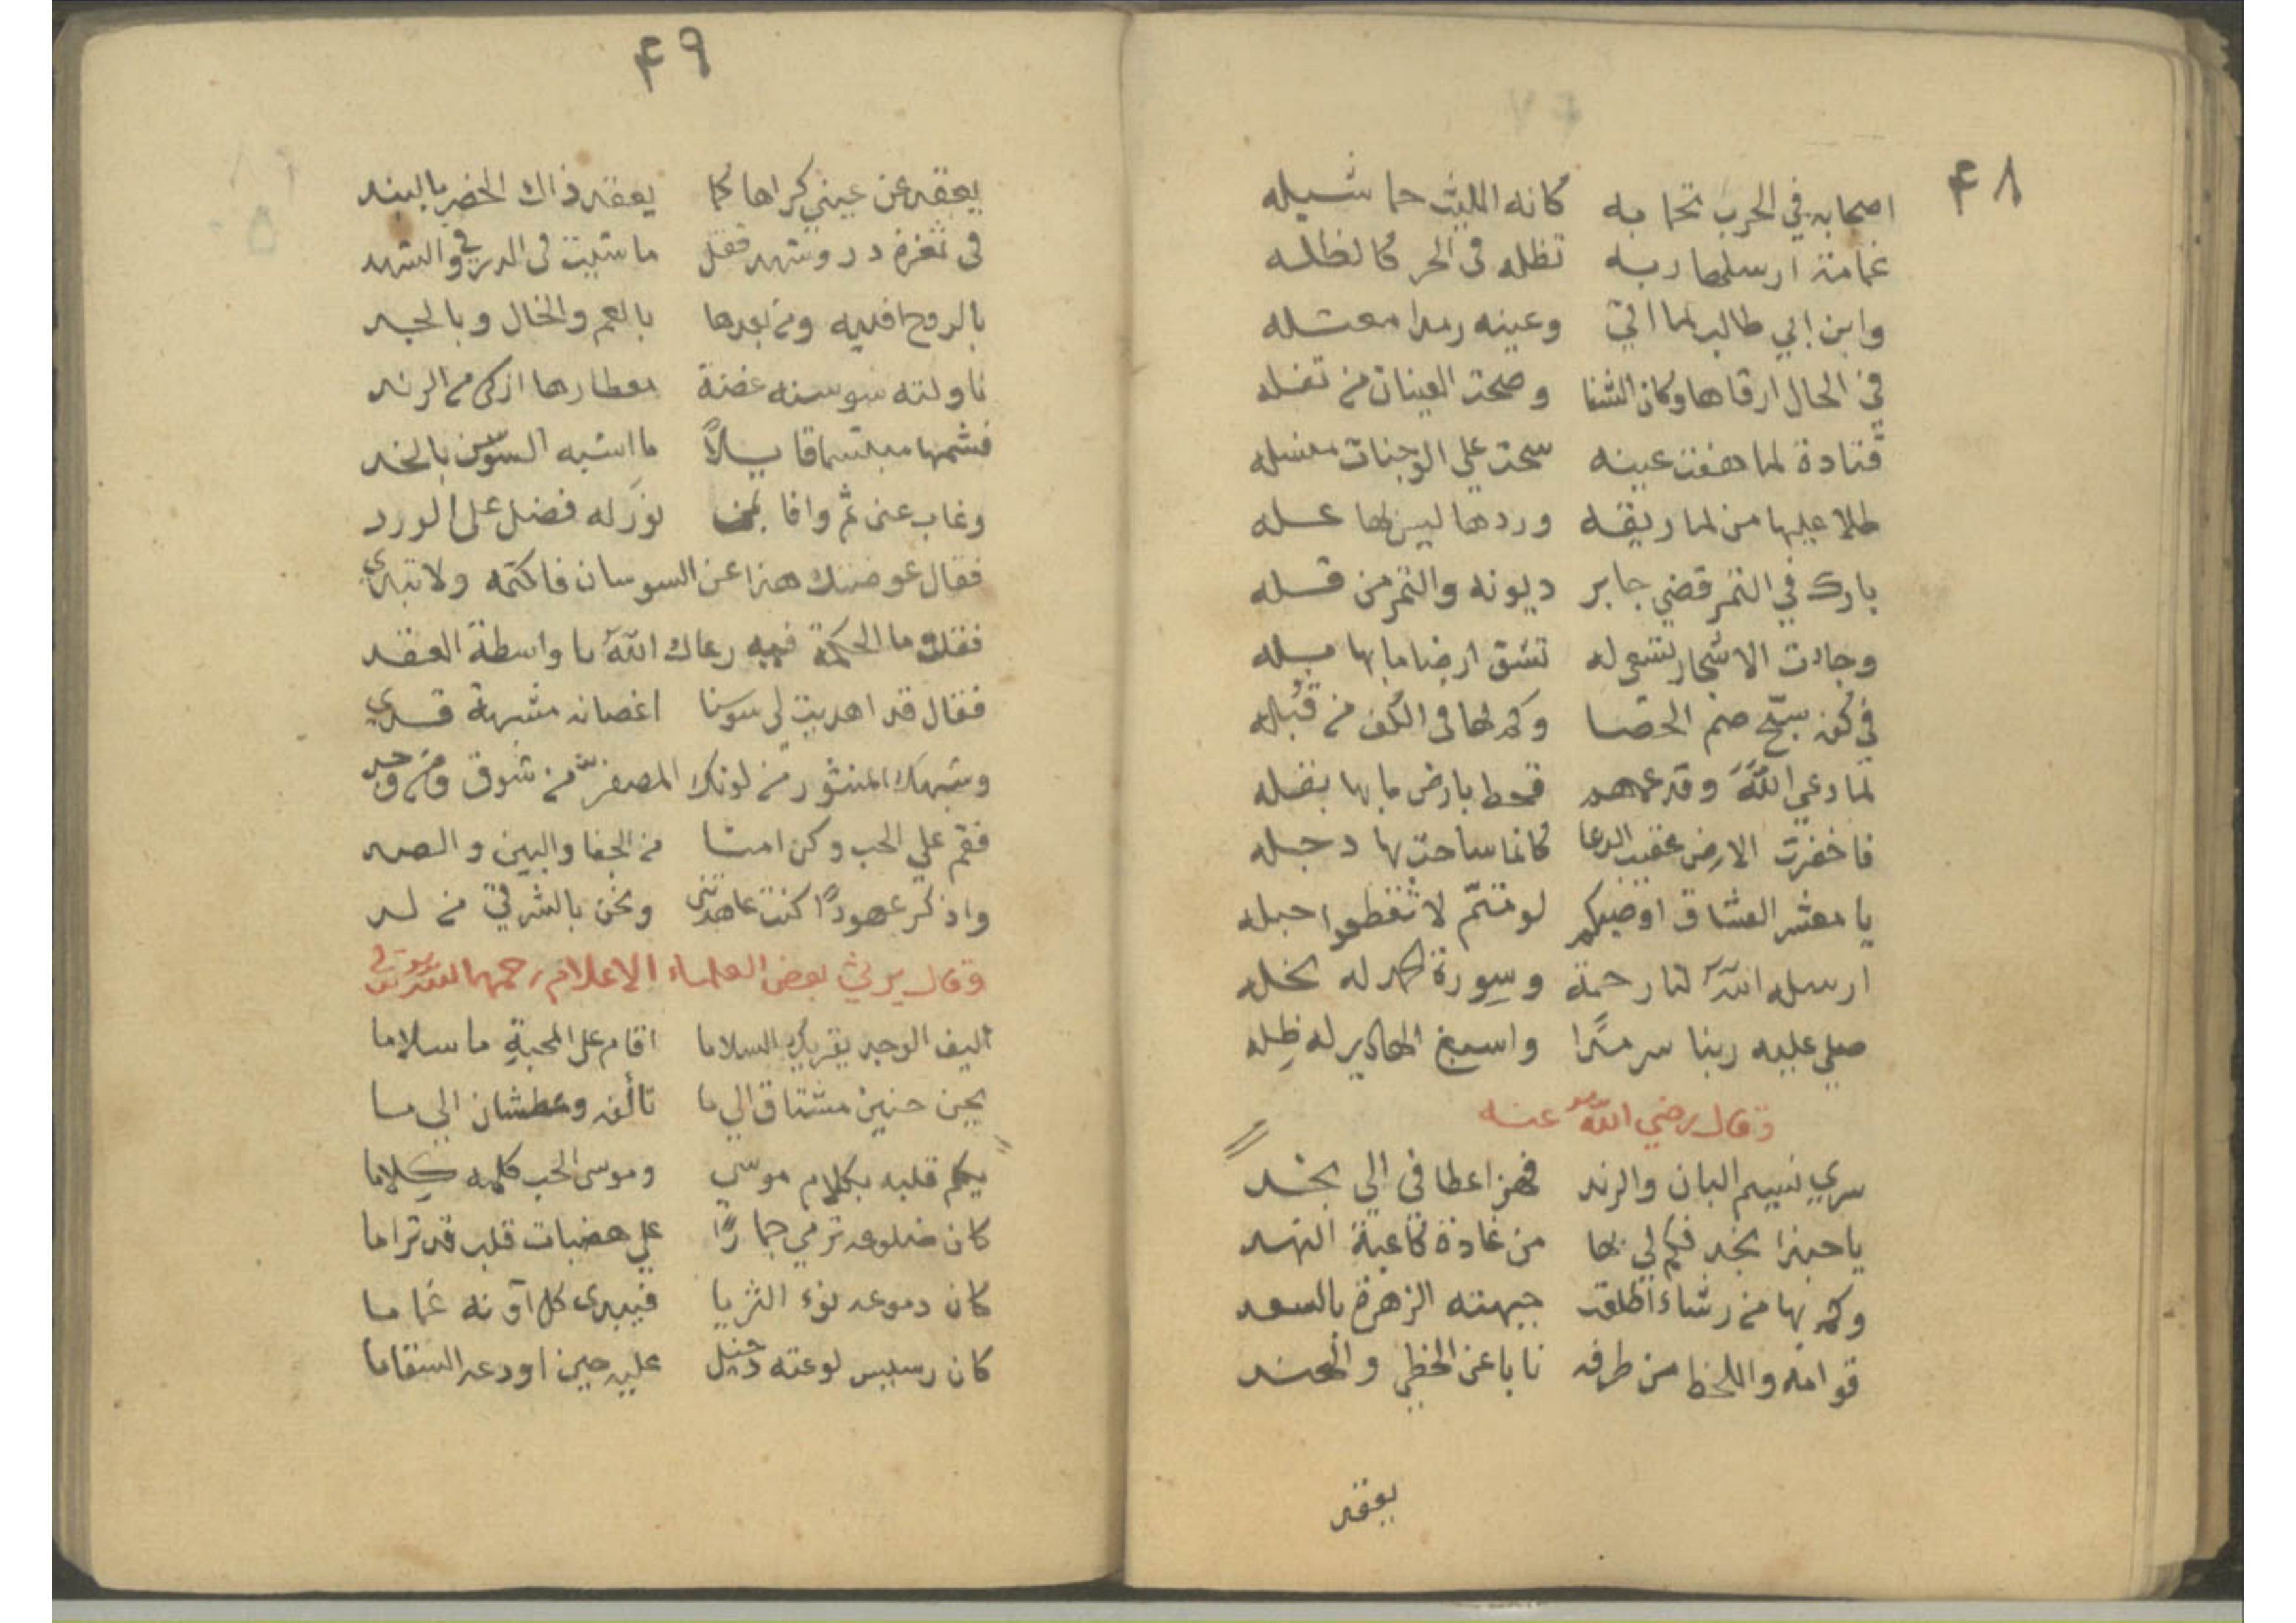 ٤٨
اصحابه في الحرب تحما به كانه الليث حما شبله
غمامة ارسلها ربه تظله في الحر كالظله
وابن ابي طالب لما اتى وعينه رمدا معتله
في الحال ارقاها وكان الشفا وصحت العينان من تفله
قتادة لما هفت عينه سحت على الوجنات منسله
طلا عليها من لما ريقه وردها ليس لها عله
بارك في التمر قضي جابر ديونه والتمر من قله
وجاءت الاشجار تسعى له تشق ارضا ما بها بله
في كفه سبّح صم الحصا وكم لها في الكف من قُبله
لما دعى الله وقد عمهم قحط بارض ما بها بقله
فاخضرت الارض عقيب الدعا كانما ساحت بها دجله
يا معشر العشاق اوصيكم لو متّم لا تقطعوا حبله
ارسله الله لنا رحمة وسورة الحمد له نحله
صلى عليه ربنا سرمدًا واسبغ الهادي له ظِله
وقال رضي الله عنه
سرى نسيم البان والرند فهز اعطافي الى نجد
يا حبذا نجد فكم لي بها من غادة كاعبة النهد
وكم بها من رشاء اطلعت جبهته الزهرة بالسعد
قوامه واللحظ من طرفه نابا عن الخطي والهند
يعقد
٤٩
يعقد عن عيني كراها كما يعقد ذاك الخصر بالبند
في ثغره در وشهد فقل ما شيت في الدر وفي الشهد
بالروح افديه ومن بعدها بالعم والخال وبالجد
ناولته سوسنة غضة معطارها ازكى من الرند
فشمها مبتسما قايلاً ما اشبه السوسن بالخد
وغاب عني ثم وافا بمن نوَر له فضل على الورد
فقال عوضتك هذا عن السوسان فاكتمه ولا تبدي
فقلت ما الحكمة فيه رعاك الله يا واسطة العقد
فقال قد اهديت لي سوسنا اغصانه مشبهة قدي
وشبهك المنثور من لونك المصفر من شوق ومن وجد
فقم على الحب وكن امنا من الجفا والبين والصد
واذكر عهودًا كنت عاهدتني ونحن بالشرقي من لد
وقال يرثي بعض العلماء الاعلام رحمهما الله تعالى
اليف الوجد يقريك السلاما اقام على المحبةِ ما سلاما
يحن حنين مشتاق الى ما تألف وعطشان الى ما
يكلم قلبه بكلام موسي وموسى الحب كلمه كِلاما
كان ضلوعه ترمي جمارًا على هضبات قلب قد تراما
كان دموعه نوء الثريا فيبدى كل آونه غماما
كان رسيس لوعته دخيل عليه حين اودعه السقاما